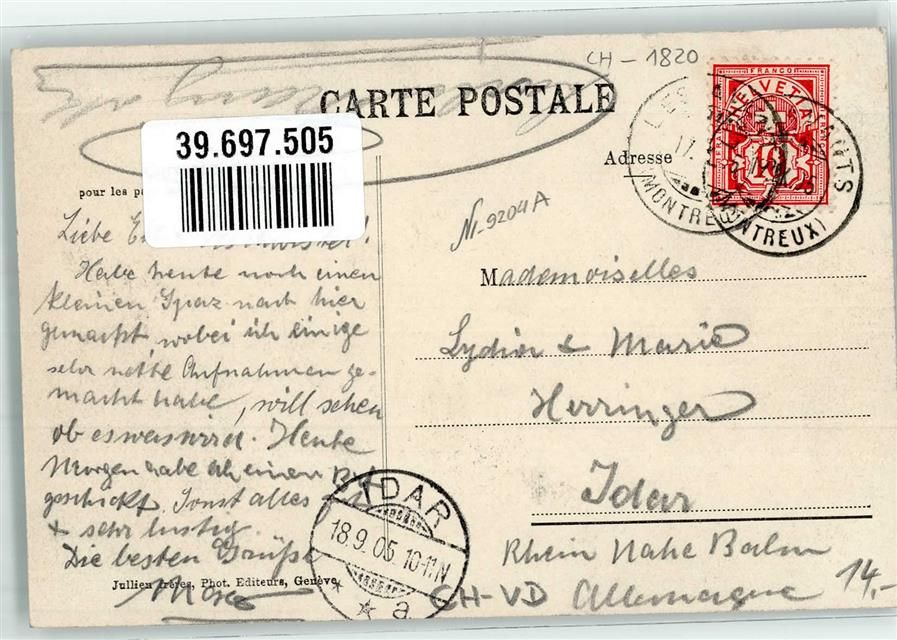 CH - 1820
CARTE POSTALE
39.697.505
FRANCO
HELVETIA
10
Adresse
MONTREUX
(MONTREUX)
pour les
Nr. 9204A
Liebe
Habe heute noch einen
kleinen Spaz nach hier
gemacht wobei ich einige
sehr nette Aufnahmen ge-
macht habe, will sehen
ob es was wird. Heute
Morgen habe ich einen
geschickt. Sonst alles
+ sehr lustig.
Die besten Grüße
Mademoiselles
Lydia & Marie
Herringer
Idar
Rhein Nahe Bahn
Allemagne
IDAR
18.9.05. 10-11N
* * a
Jullien frères, Phot. Editeurs, Genève
CH-VD
14,-